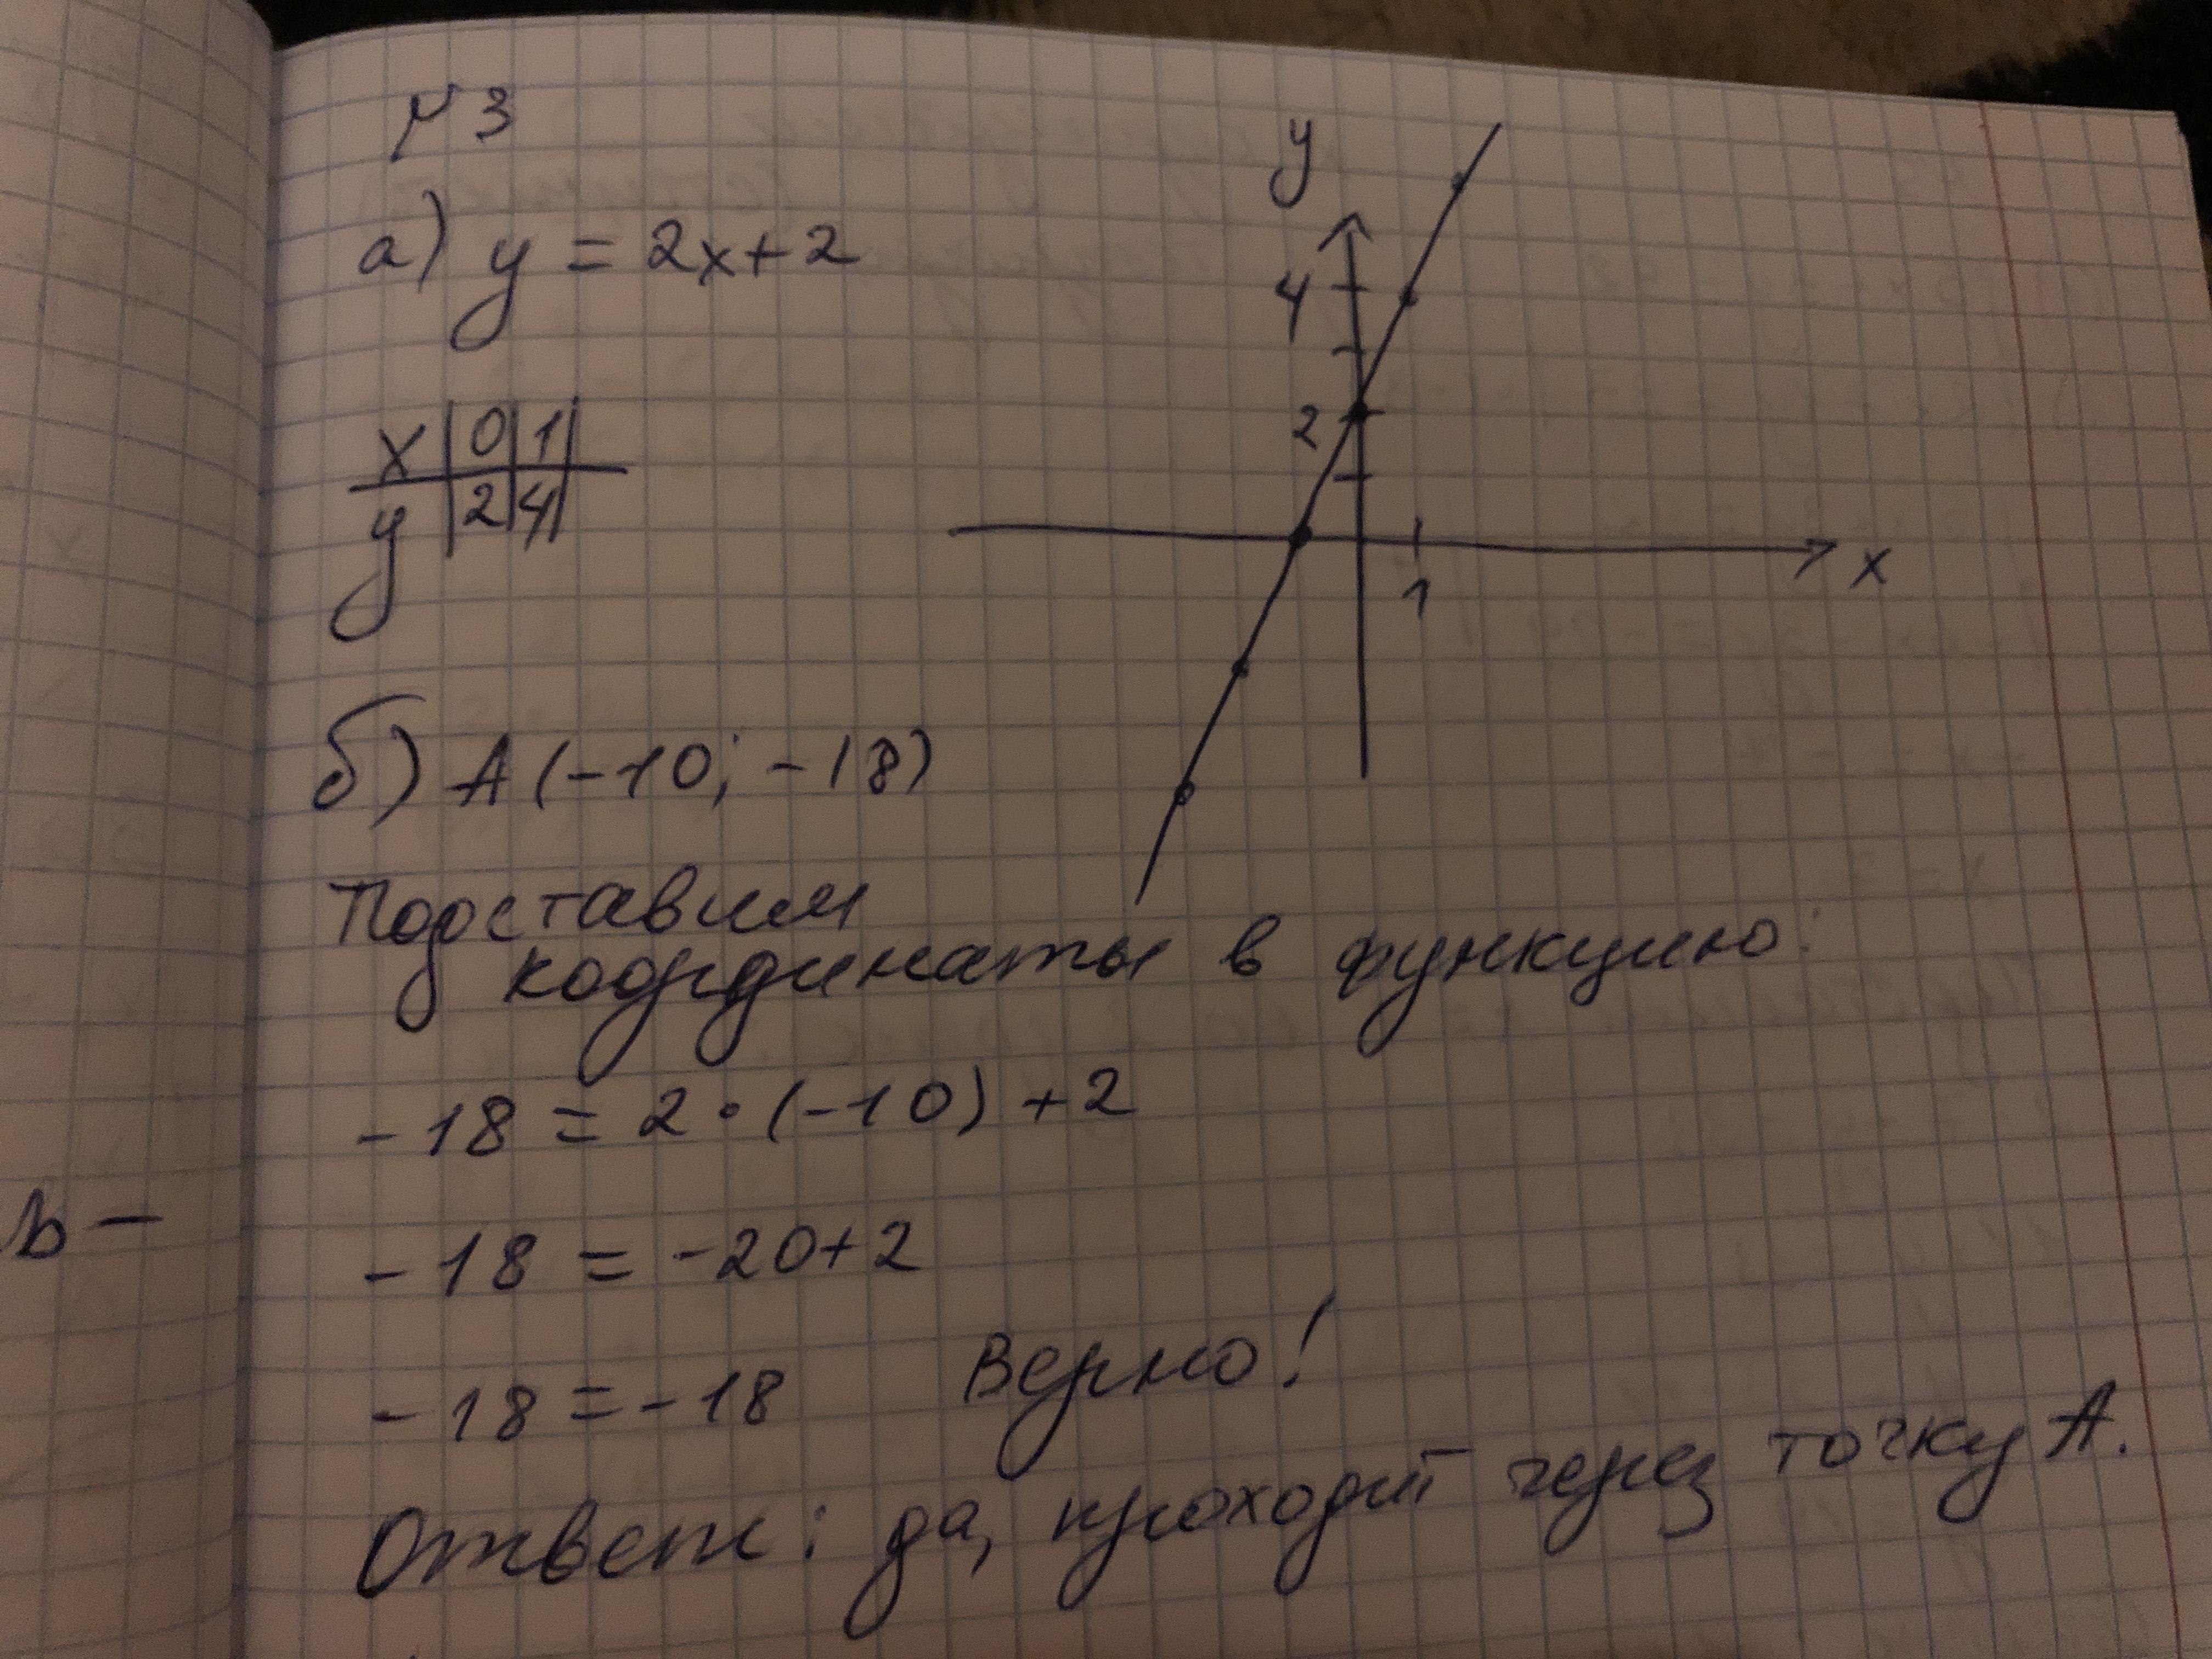 № 3
а) y = 2x+2
x | 0 | 1 |
y | 2 | 4 |
y
4
2
1
x
б) А (-10; -18)
Подставим
координаты в функцию:
-18 = 2 · (-10) + 2
ь —
-18 = -20+2
-18 = -18 Верно!
Ответ: да, проходит через точку А.